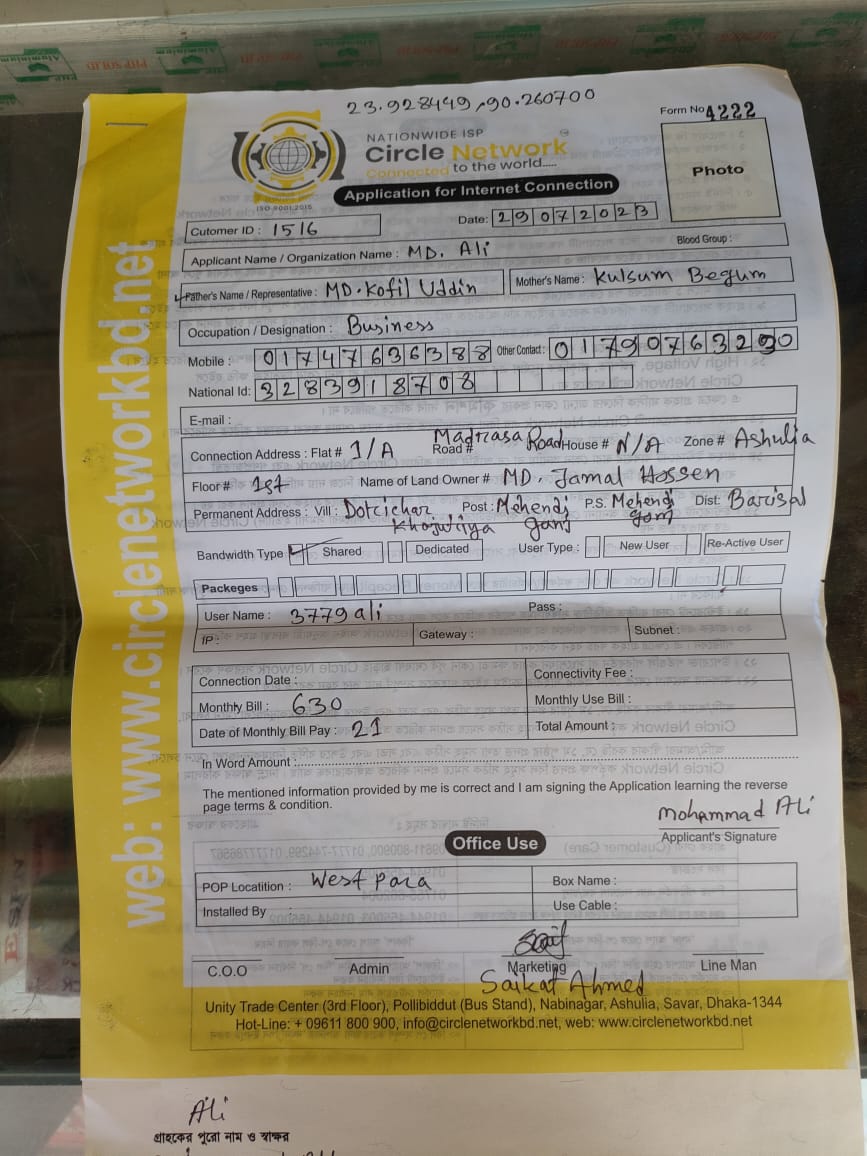 23.928449,90.260700
Form No 4222
NATIONWIDE ISP
Circle Network
Connected to the world.....
ISO 9001:2015
Application for Internet Connection
Photo
Cutomer ID : 1516
Date: 29072023
Applicant Name / Organization Name : MD. Ali
Blood Group :
Father's Name / Representative : MD. Kofil Uddin
Mother's Name : Kulsum Begum
Occupation / Designation : Business
Mobile : 01747636388 Other Contact : 01790763290
National Id: 3283918708
E-mail :
Connection Address : Flat # 1/A Road # Madrasa Road House # N/A Zone # Ashulia
Floor # 1st Name of Land Owner # MD. Jamal Hossen
Permanent Address : Vill : Post : Mehendi ganj P.S. Mehendi ganj Dist: Barisal
Bandwidth Type Shared Dedicated User Type : New User Re-Active User
Packeges
User Name : 3779ali Pass :
IP : Gateway : Subnet :
Connection Date : Connectivity Fee :
Monthly Bill : 630 Monthly Use Bill :
Date of Monthly Bill Pay : 21 Total Amount :
In Word Amount :
The mentioned information provided by me is correct and I am signing the Application learning the reverse
page terms & condition.
Mohammad Ali
Applicant's Signature
Office Use
POP Locatition : West para Box Name :
Installed By : Use Cable :
C.O.O Admin Marketing Line Man
Saikat Ahmed
Unity Trade Center (3rd Floor), Pollibiddut (Bus Stand), Nabinagar, Ashulia, Savar, Dhaka-1344
Hot-Line: + 09611 800 900, info@circlenetworkbd.net, web: www.circlenetworkbd.net
web: www.circlenetworkbd.net
Ali
গ্রাহকের পুরো নাম ও স্বাক্ষর